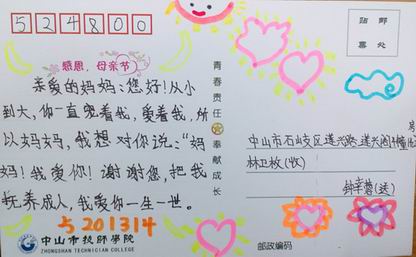 524800
贴 邮
票 处
感恩，母亲节
亲爱的妈妈：您好！从小
到大，你一直宠着我，爱着我，所
以妈妈，我想对你说：“妈
妈！我爱你！谢谢您，把我
抚养成人，我爱你一生一世。
5201314
中山市技师学院
ZHONGSHAN TECHNICIAN COLLEGE
青春责任 奉献成长
中山市石岐区莲兴路
林卫枚(收)
钟幸蓉(送)
邮政编码